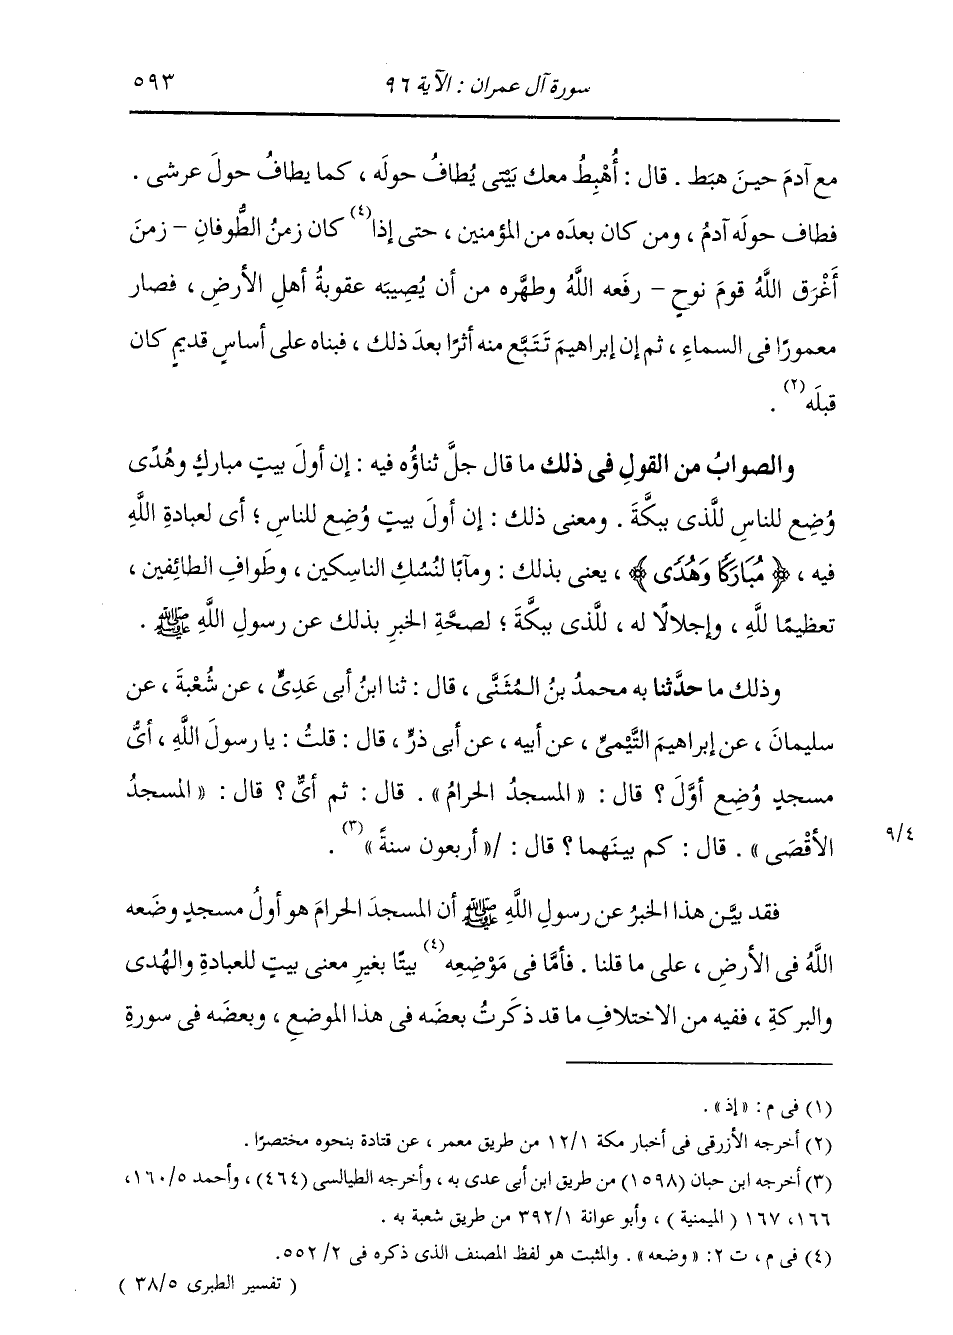 سورة آل عمران : الآية ٩٦
٥٩٣
مع آدمَ حينَ هبَط . قال : أُهْبِطُ معك بَيْتى يُطافُ حولَه ، كما يطافُ حولَ عرشى .
فطاف حولَه آدمُ ، ومن كان بعدَه من المؤمنين ، حتى إذا(٤) كان زمنُ الطُّوفانِ - زمنَ
أَغْرَق اللَّهُ قومَ نوحٍ - رفَعه اللَّهُ وطهَّره من أن يُصِيبَه عقوبةُ أهلِ الأرضِ ، فصار
معمورًا فى السماءِ ، ثم إن إبراهيمَ تَتَبَّع منه أثرًا بعدَ ذلك ، فبناه على أساسٍ قديمٍ كان
قبلَه(٢) .
والصوابُ من القولِ فى ذلك ما قال جلَّ ثناؤُه فيه : إن أولَ بيتٍ مباركٍ وهُدًى
وُضِع للناسِ لَلَّذى ببكَّةَ . ومعنى ذلك : إن أولَ بيتٍ وُضِع للناسِ ؛ أى لعبادةِ اللَّهِ
فيه ، ﴿ مُبَارَكًا وَهُدًى ﴾ ، يعنى بذلك : ومآبًا لنُسُكِ الناسكين ، وطَوافِ الطائِفين ،
تعظيمًا للَّهِ ، وإجلالًا له ، لَلَّذى ببكَّةَ ؛ لصحَّةِ الخبرِ بذلك عن رسولِ اللَّهِ ﷺ .
وذلك ما حدَّثنا به محمدُ بنُ المُثَنَّى ، قال : ثنا ابنُ أبى عَدِىٍّ ، عن شُعْبةَ ، عن
سليمانَ ، عن إبراهيمَ التَّيْمىِّ ، عن أبيه ، عن أبى ذرٍّ ، قال : قلتُ : يا رسولَ اللَّهِ ، أىُّ
مسجدٍ وُضِع أوَّلَ ؟ قال : « المسجدُ الحرامُ » . قال : ثم أىٌّ ؟ قال : « المسجدُ
الأقْصَى » . قال : كم بينَهما ؟ قال : /« أربعون سنةً »(٣) .
٩/٤
فقد بيَّن هذا الخبرُ عن رسولِ اللَّهِ ﷺ أن المسجدَ الحرامَ هو أولُ مسجدٍ وضَعه
اللَّهُ فى الأرضِ ، على ما قلنا . فأمَّا فى مَوْضِعِه(٤) بيتًا بغيرِ معنى بيتٍ للعبادةِ والهُدى
والبركةِ ، ففيه من الاختلافِ ما قد ذكَرتُ بعضَه فى هذا الموضعِ ، وبعضَه فى سورةِ
(١) فى م : « إذ » .
(٢) أخرجه الأزرقى فى أخبار مكة ١٢/١ من طريق معمر ، عن قتادة بنحوه مختصرًا .
(٣) أخرجه ابن حبان (١٥٩٨) من طريق ابن أبى عدى به ، وأخرجه الطيالسى (٤٦٤) ، وأحمد ١٦٠/٥،
١٦٦، ١٦٧ ( الميمنية ) ، وأبو عوانة ٣٩٢/١ من طريق شعبة به .
(٤) فى م ، ت ٢: « وضعه » . والمثبت هو لفظ المصنف الذى ذكره فى ٢/ ٥٥٢.
( تفسير الطبرى ٣٨/٥ )